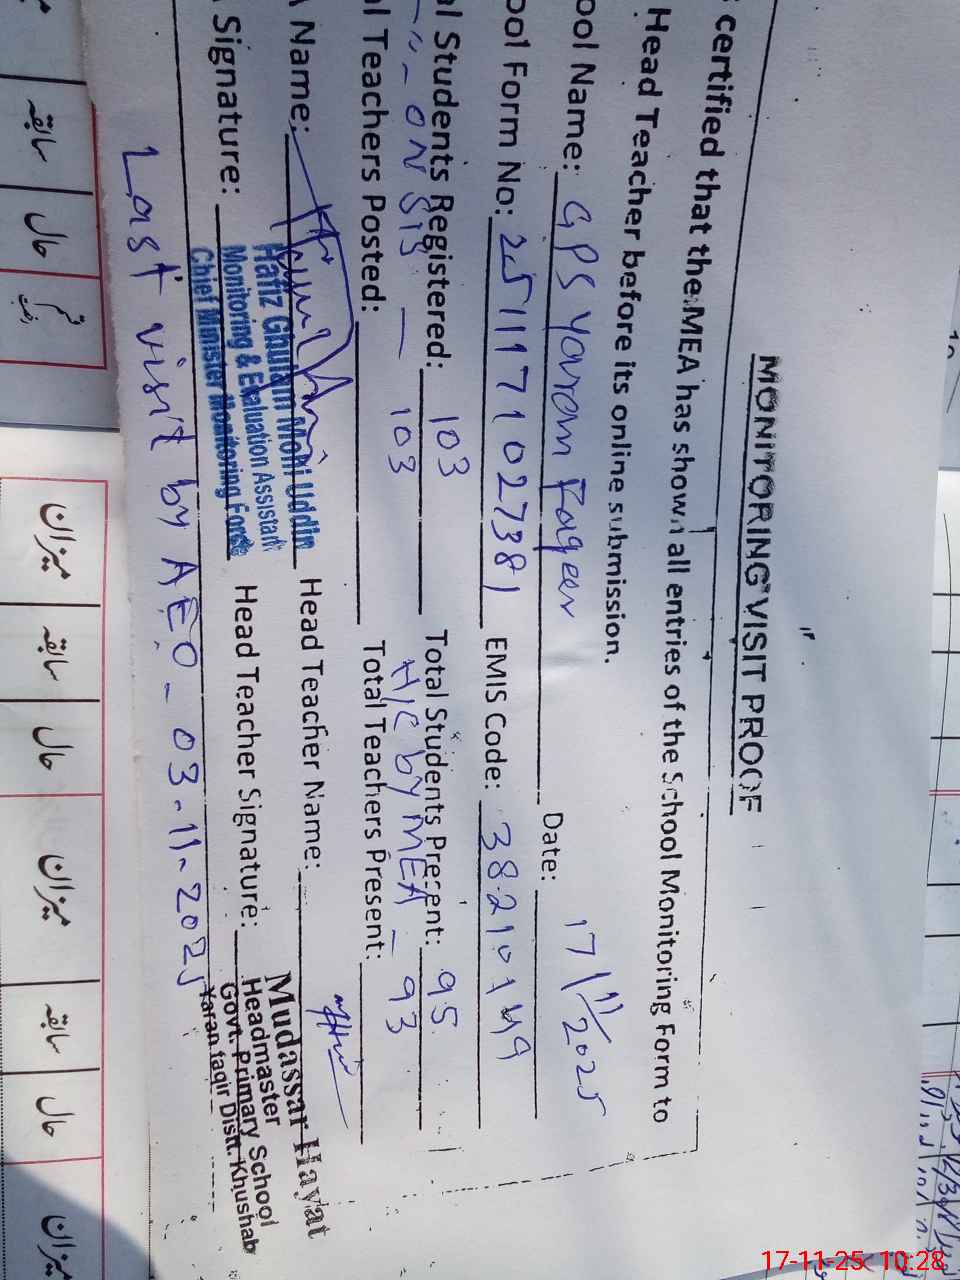 MONITORING VISIT PROOF
certified that the MEA has shown all entries of the School Monitoring Form to
Head Teacher before its online submission.
ool Name: GPS Yaran Faqeer Date: 17/11/2025
ool Form No: 2511171027381 EMIS Code: 38210149
al Students Registered: 103 Total Students Present: 95
ON SIS — 103 H/C by MEA - 93
l Teachers Posted: Total Teachers Present:
Name: Head Teacher Name:
Signature: Head Teacher Signature:
Hafiz Ghulam Mohi Uddin
Monitoring & Evaluation Assistant
Chief Minister Monitoring Force
Mudassar Hayat
Headmaster
Govt. Primary School
Yaran faqir Distt. Khushab
Last visit by AEO - 03-11-2025
سابقہ حال
میزان سابقہ حال میزان سابقہ حال میزان
17-11-25 10:28